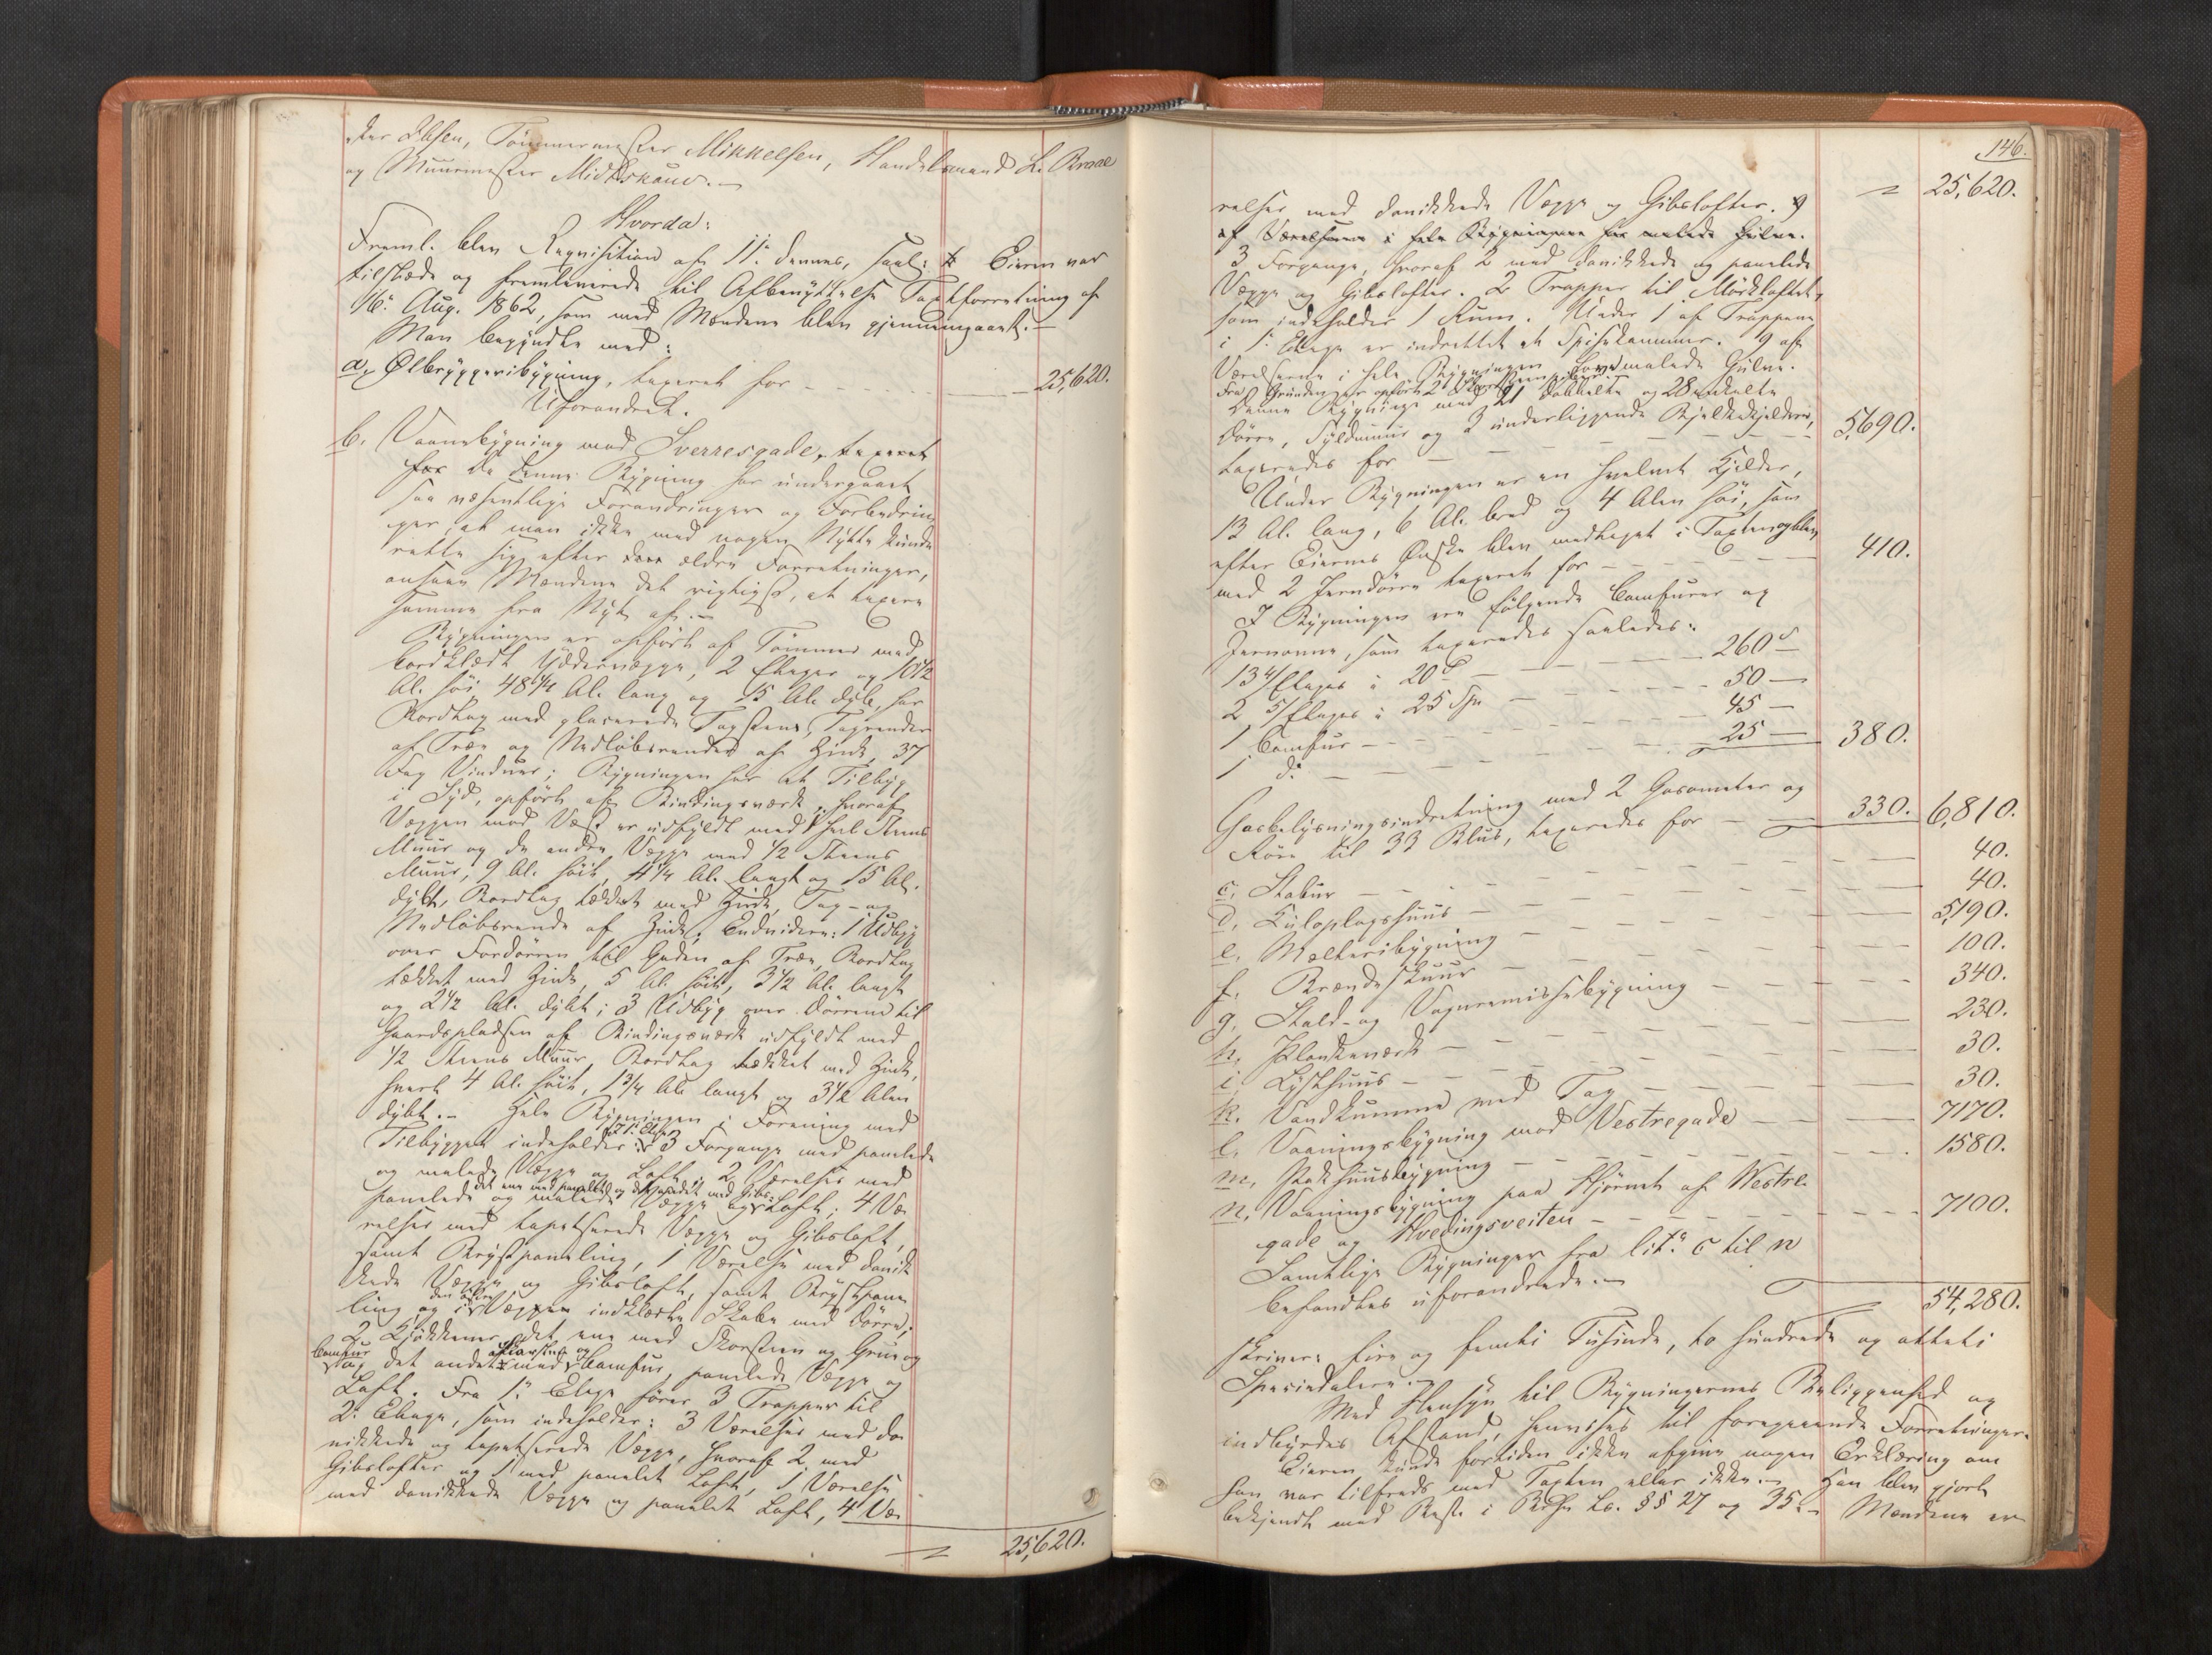 ster Ibsen, Tømmermester Mikkelsen, Handelsmand L. Braae
og Muurmester Midtskouw.—
Hvorda:
Freml. blev Requisition af 11. dennes, Eieren var
tilstede og fremleverede til Afbenyttelse Taxtforretning af
16. Aug. 1862, som med Mændene blev gjennemgaaet.—
Man begyndte med:
a, Ølbryggeribygning, taxeret for — 25,620.
Uforandret.
b. Vaanebygning mod Sverresgade, taxeret
for Da denne Bygning har undergaaet
saa væsentlige Forandringer og Forbedrin-
ger, at man ikke med nogen Nytte kunde
rette sig efter den ældre Forretninger,
ansaae Mændene det rigtigst, at taxere
samme fra Nyt af.—
Bygningen er opført af Tømmer med
bordklædt Ydervægge, 2 Etager og 10 1/2
Al. høi, 48 1/4 Al. lang og 15 Al. dyb, har
Bordtag med glaserede Tagsteen, Tagrender
af Træ og Nedløbsrender af Zink, 37
Fag Vinduer; Bygningen har et Tilbyg
i Syd, opført af Bindingsværk, hvoraf
Væggen mod Vest er udfyldt med 1 heel Steens
Muur og de andre Vægge med 1/2 Steens
Muur, 9 Al. høit, 4 1/4 Al. langt og 15 Al.
dybt, Bordtag tækket med Zink, Tag- og
Nedløbsrende af Zink. Endvidere: 1 Udbyg
over Fordøren til Gaden af Træ, Bordtag
tækket med Zink, 5 Al. høit, 3 1/2 Al. langt
og 2 1/2 Al. dybt; 3 Udbyg over Dørrene til
Gaardspladsen af Bindingsværk udfyldt med
1/2 Steens Muur, Bordtag tækket med Zink,
hvert 4 Al. høit, 1 3/4 Al. langt og 3 1/2 Alen
dybt.— Hele Bygningen i Forening med
Tilbygget indeholder: i 1. Etage 3 Forgange med panelede
og malede Vægge og Loft, 2 Værelser med
det ene med panelet og det andet med Gibs-
panelede og malede Vægge og Loft; 4 Væ-
relser med tapetserede Vægge og Gibsloft,
samt Brystpaneling, 1 Værelse med donik-
kede Vægge og Gibsloft, samt Brystpane-
ling og i Væggen indklædte Skabe med Dørre;
2 Kjøkkener, det ene med Skorsteen og Grue og
Comfur og det andet med Comfur, panelede Vægge og
Loft. Fra 1. Etage fører 3 Trapper til
2. Etage, som indeholder: 3 Værelser med do-
nikkede og tapetserede Vægge, hvoraf 2 med
Gibslofter og 1 med panelet Loft, 1 Værelse
med donikkede Vægge og panelet Loft, 4 Væ-
25,620.
146.
25,620.
relser med donikkede Vægge og Gibslofter. 9
af Værelserne i hele Bygningen har malede Gulve.
3 Forgange, hvoraf 2 med donikkede og panelede
Vægge og Gibslofter. 2 Trapper til Mørkloftet,
som indeholder 1 Rum. Under 1 af Trapperne
i 1. Etage er indrettet et Spisekammer. 9 af
Værelserne i hele Bygningen have malede Gulve.
Fra Grunden er opført 2 Skorsteenspiber.
Denne Bygning med 21 dobbelte og 28 enkelte
Dørre, Syldmuur og 2 underliggende Bjelkekjeldere,
taxeredes for — 5,690.
Under Bygningen er en hvelvet Kjelder,
13 Al. lang, 6 Al. bred og 4 Alen høi, som
efter Eierens Ønske blev medtaget i Taxten og blev
med 2 Jerndørre taxeret for — 410.
I Bygningen ere følgende Comfurer og
Jernovne, som taxeredes saaledes:
13 4/Etages à 20 — 260
2 5/Etages à 25 Spd — 50 —
1 Comfur — 45 —
1 do — 25 — 380.
Gasbelysningsindretning med 2 Gasometer og
Rør til 33 Blus, taxeredes for — 330. 6,810.
c, Stabur — 40.
d, Kuloplagshuus — 40.
e, Malteribygning — 5,190.
f, Brændeskuur — 100.
g, Stald- og Vognremissebygning — 340.
h, Plankeværk — 230.
i, Lysthuus — 30.
k, Vandkumme med Tag — 30.
l, Vaaningsbygning mod Vestregade — 7170.
m, Pakhuusbygning — 1580.
n, Vaaningsbygning paa Hjørnet af Westre-
gade og Hvedingsveiten — 7100.
Samtlige Bygninger fra lit. c til n
befandtes uforandrede.—
54,280.
skriver: fire og femti Tusinde, to hundrede og otteti
Speciedaler.—
Med Hensyn til Bygningernes Beliggenhed og
indbyrdes Afstand, henvises til foregaaende Forretninger.
Eieren kunde fortiden ikke afgive nogen Erklæring om
han var tilfreds med Taxten eller ikke.— Han blev gjort
bekjendt med Lov §§ 27 og 35.— Mændene er